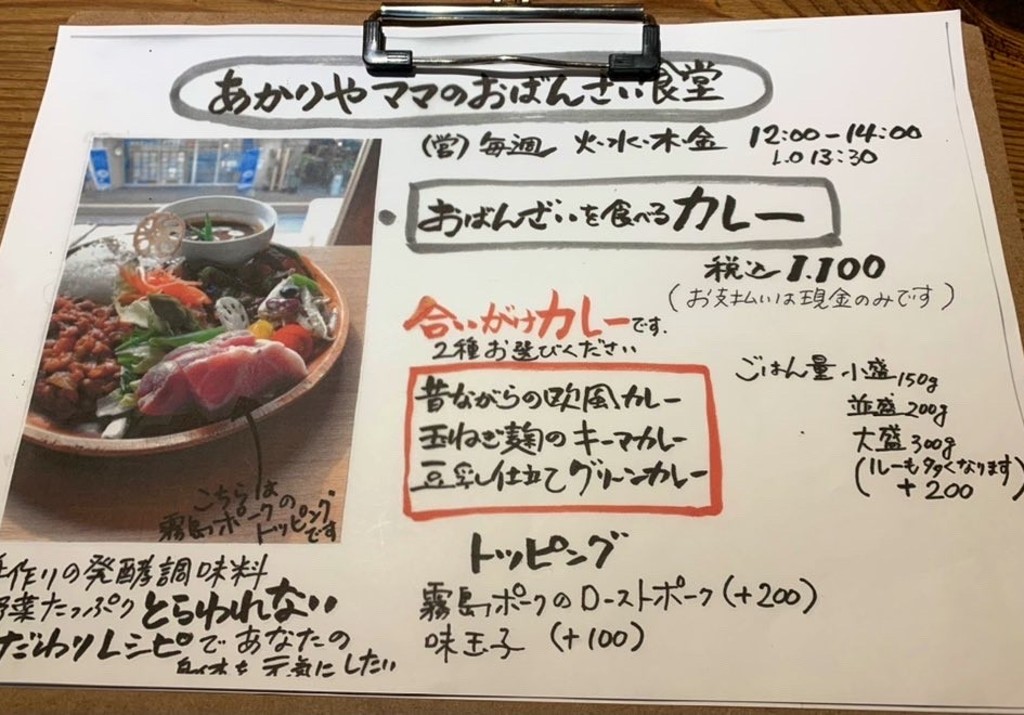 あかりやママのおばんざい食堂
(営) 毎週 火・水・木・金 12:00-14:00
L.O 13:30
おばんざいを食べるカレー
税込 1.100
(お支払いは現金のみです)
合いがけカレーです.
2種お選びください
昔ながらの欧風カレー
玉ねぎ麹のキーマカレー
豆乳仕立てグリーンカレー
ごはん量 小盛 150g
並盛 200g
大盛 300g
(ルーも多くなります)
+200
トッピング
霧島ポークのローストポーク (+200)
味玉子 (+100)
こちらは
霧島ポークの
トッピング
です
手作りの発酵調味料
野菜たっぷり とらわれない
だわりレシピであなたの
元気にしたい